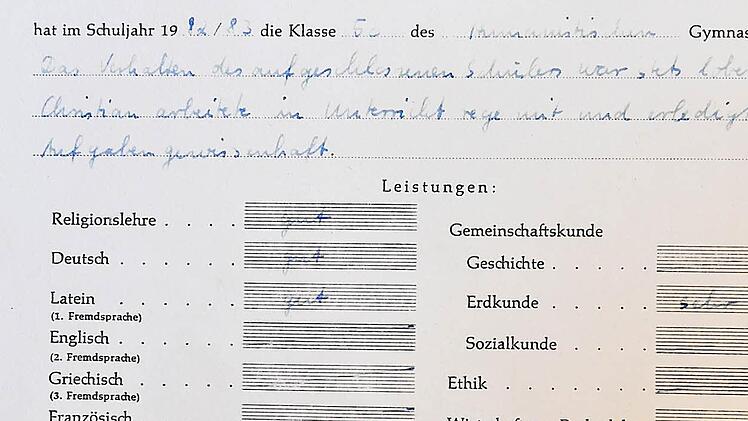 hat im Schuljahr 19 82/83 die Klasse 5c des Humanistischen Gymnas
Das Verhalten des aufgeschlossenen Schülers war stets lobe
Christian arbeitete im Unterricht rege mit und erledigt
Aufgaben gewissenhaft.
Leistungen:
Religionslehre . . . . gut
Deutsch . . . . . gut
Latein . . . . . gut
(1. Fremdsprache)
Englisch . . . . .
(2. Fremdsprache)
Griechisch . . . .
(3. Fremdsprache)
Französisch
Gemeinschaftskunde
Geschichte . . . . .
Erdkunde . . . . . sehr
Sozialkunde . . . .
Ethik . . . . . .